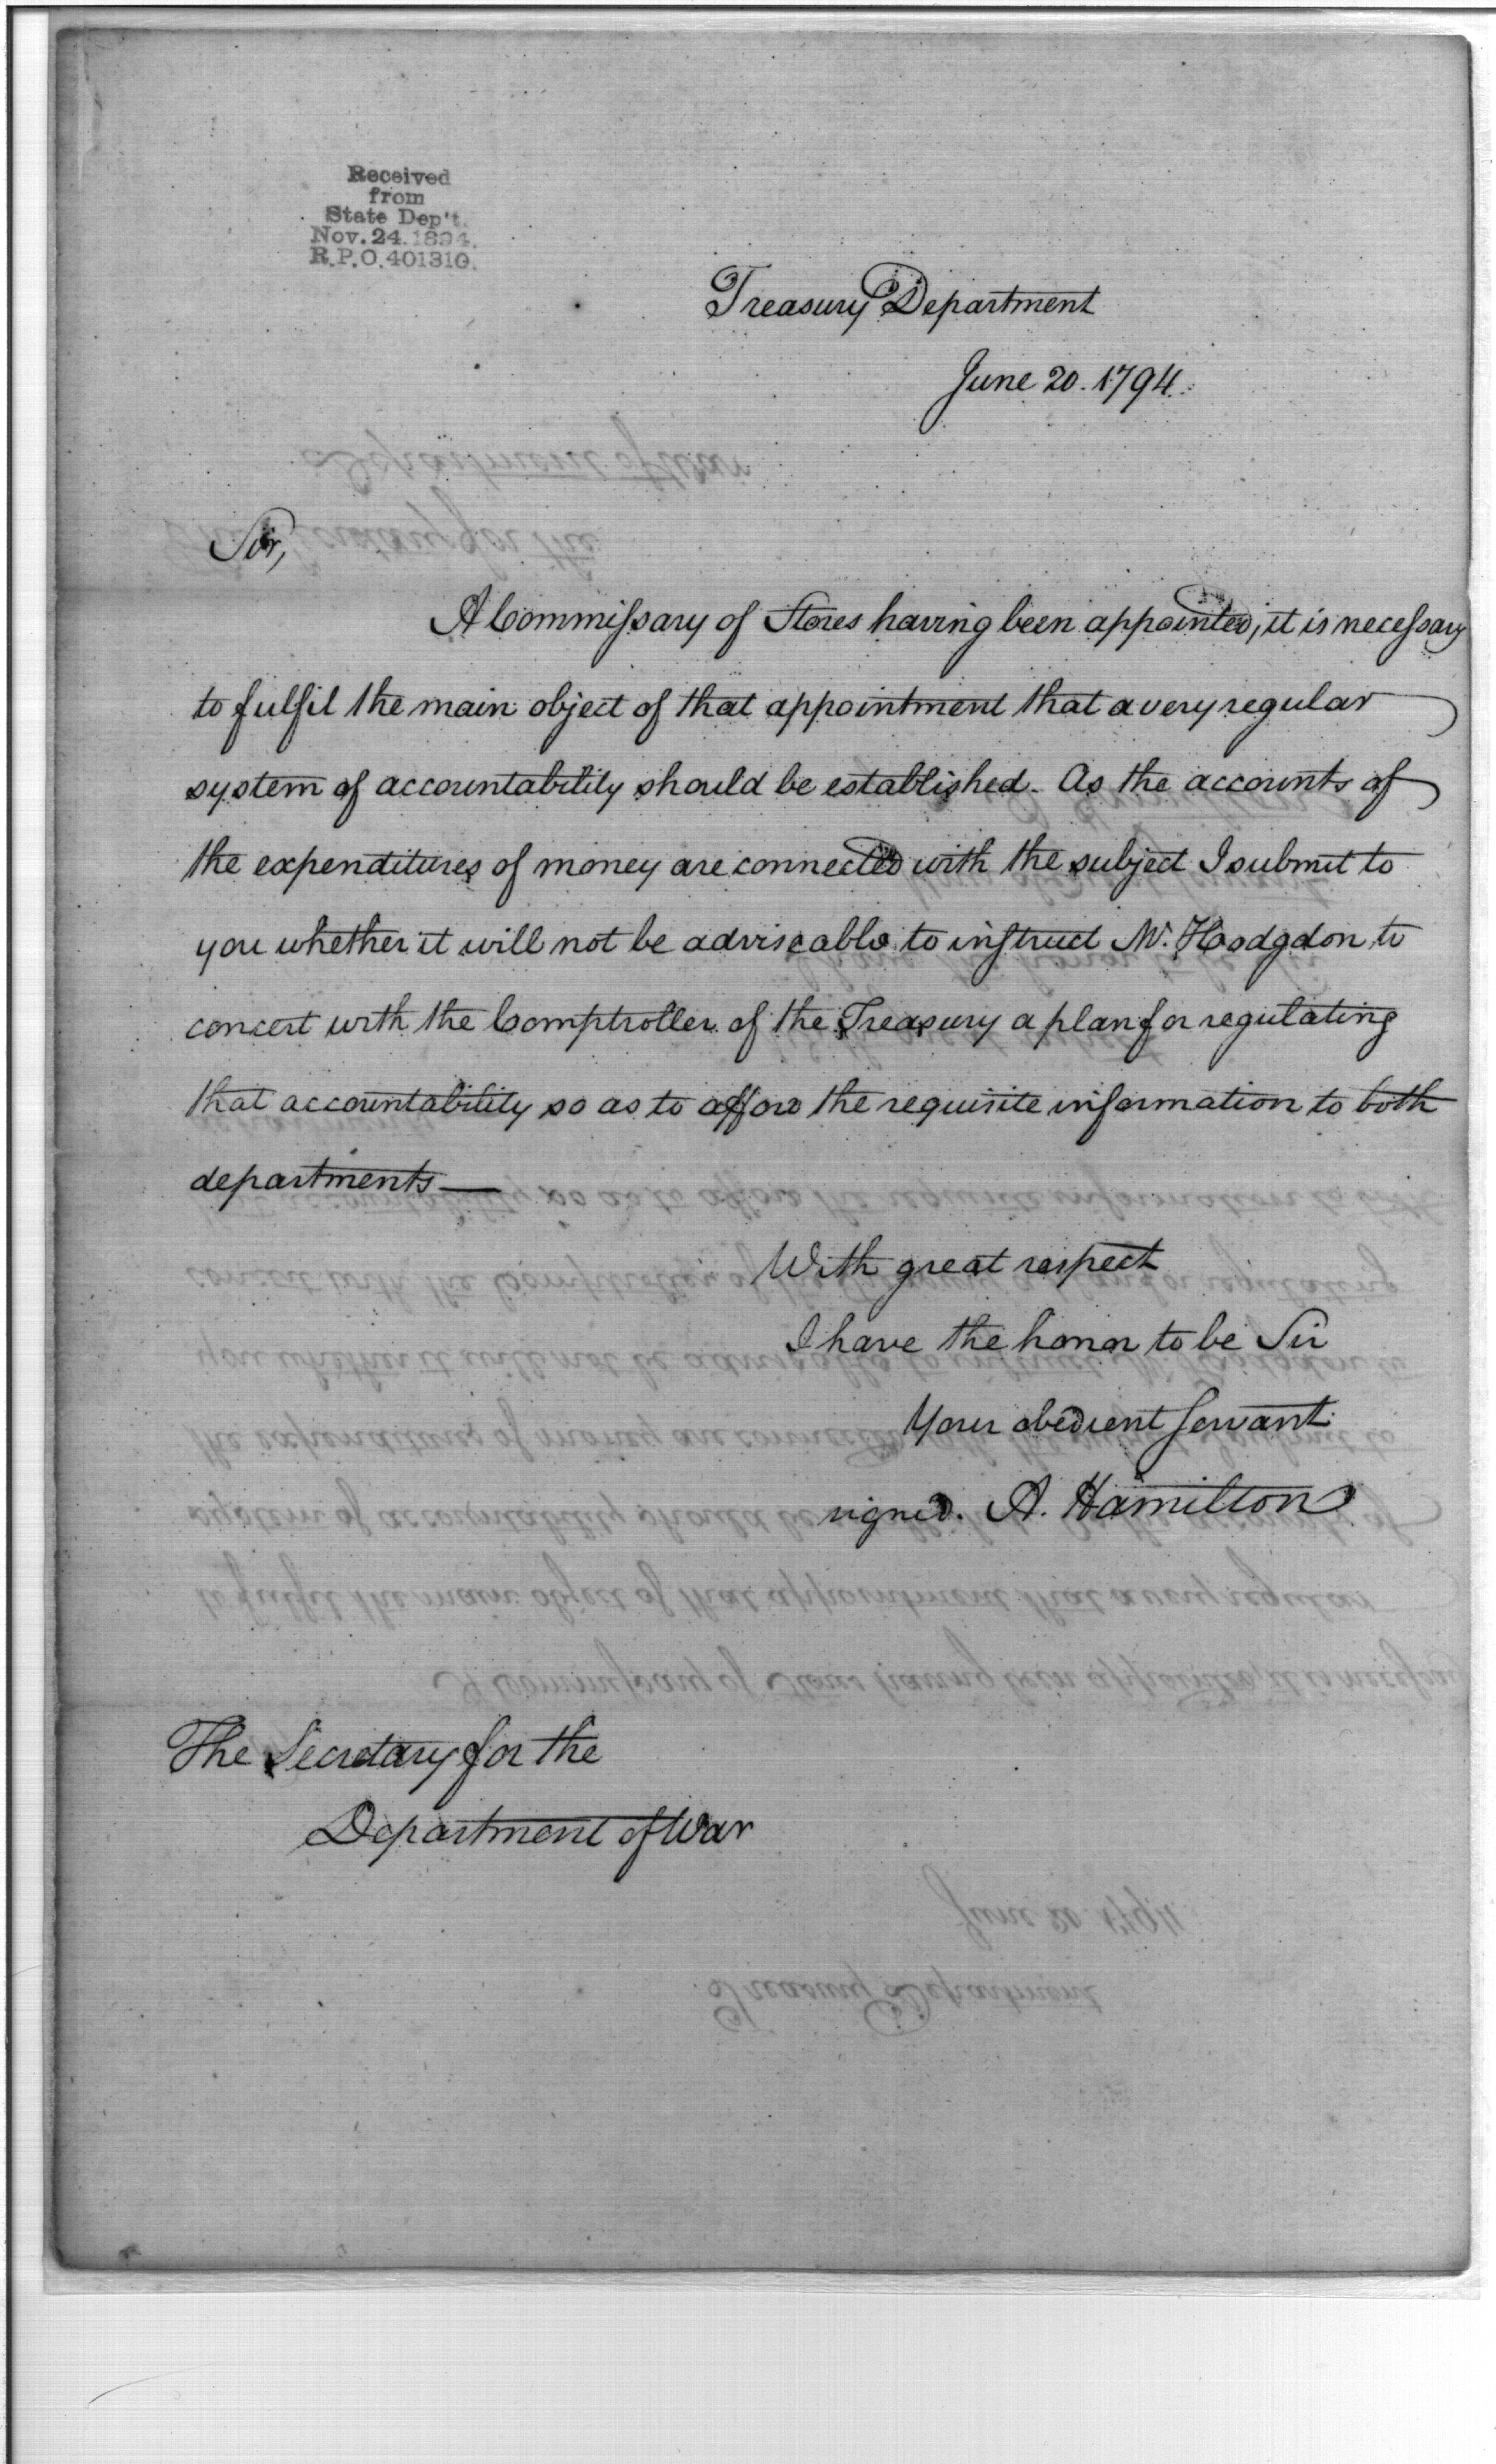 Received
from
State Dep't.
Nov. 24. 1894.
R.P.O. 401310.
Treasury Department
June 20. 1794.
Sir,
A Commissary of Stores having been appointed, it is necessary
to fulfil the main object of that appointment that a very regular
system of accountability should be established. As the accounts of
the expenditures of money are connected with the subject I submit to
you whether it will not be adviseable to instruct Mr. Hodgdon to
concert with the Comptroller of the Treasury a plan for regulating
that accountability so as to afford the requisite information to both
departments —
With great respect
I have the honor to be Sir
Your obedient servant
signed. A. Hamilton
The Secretary for the
Department of War